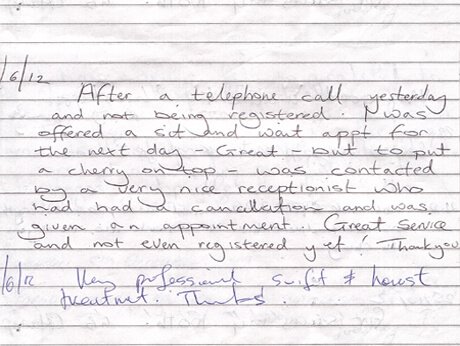 /6/12
After a telephone call yesterday
and not being registered. I was
offered a sit and wait appt for
the next day - Great - but to put
a cherry on top - was contacted
by a very nice receptionist who
had had a cancellation and was
given an appointment. Great Service
and not even registered yet! Thankyou
/6/12 Very professional swift & honest
treatment. Thanks.